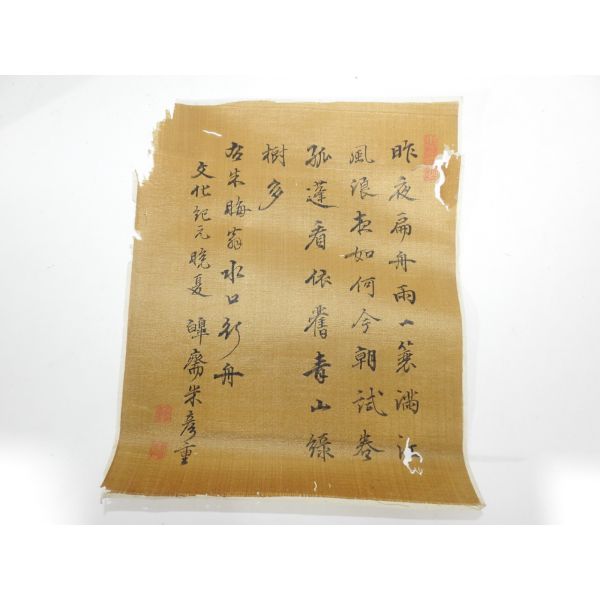 昨夜扁舟雨一蓑滿江
風浪夜如何今朝試卷
孤蓬看依舊青山緑
樹多
右朱晦翁水口行舟
文化紀元晩夏 齋米彦重